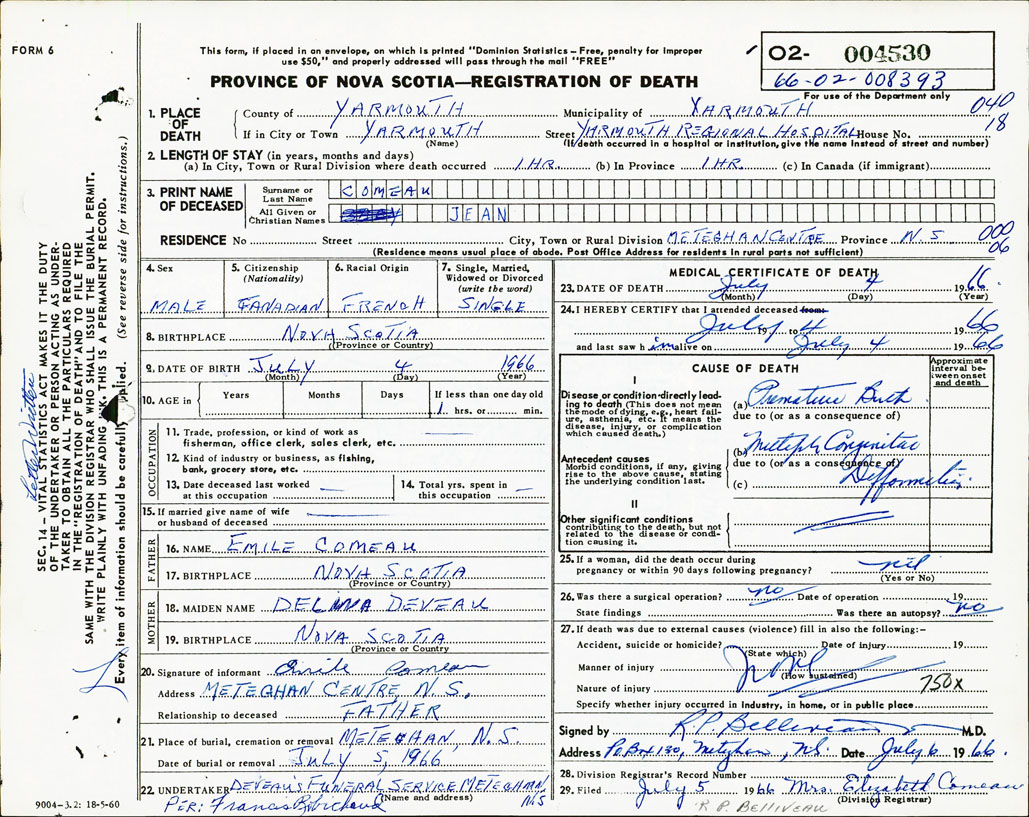 FORM 6
This form, if placed in an envelope, on which is printed "Dominion Statistics – Free, penalty for improper
use $50," and properly addressed will pass through the mail "FREE"
PROVINCE OF NOVA SCOTIA—REGISTRATION OF DEATH
02- 004530
66-02-008393
For use of the Department only
040
18
1. PLACE OF DEATH
County of YARMOUTH Municipality of YARMOUTH
If in City or Town YARMOUTH Street YARMOUTH REGIONAL HOSPITAL House No.
(Name) (If death occurred in a hospital or institution, give the name instead of street and number)
2. LENGTH OF STAY (in years, months and days)
(a) In City, Town or Rural Division where death occurred 1 HR. (b) In Province 1 HR. (c) In Canada (if immigrant)
3. PRINT NAME OF DECEASED
Surname or Last Name COMEAU
All Given or Christian Names JEAN
RESIDENCE No Street City, Town or Rural Division METEGHAN CENTRE Province N.S
000
06
(Residence means usual place of abode. Post Office Address for residents in rural parts not sufficient)
4. Sex
MALE
5. Citizenship
(Nationality)
CANADIAN
6. Racial Origin
FRENCH
7. Single, Married,
Widowed or Divorced
(write the word)
SINGLE
8. BIRTHPLACE NOVA SCOTIA
(Province or Country)
9. DATE OF BIRTH JULY 4 1966
(Month) (Day) (Year)
10. AGE in Years Months Days If less than one day old
1 hrs. or min.
OCCUPATION
11. Trade, profession, or kind of work as
fisherman, office clerk, sales clerk, etc.
12. Kind of industry or business, as fishing,
bank, grocery store, etc.
13. Date deceased last worked
at this occupation
14. Total yrs. spent in
this occupation
15. If married give name of wife
or husband of deceased
FATHER
16. NAME EMILE COMEAU
17. BIRTHPLACE NOVA SCOTIA
(Province or Country)
MOTHER
18. MAIDEN NAME DEVEAU
19. BIRTHPLACE NOVA SCOTIA
(Province or Country)
20. Signature of informant Emile Comeau
Address METEGHAN CENTRE, N.S.
Relationship to deceased FATHER
21. Place of burial, cremation or removal METEGHAN, N.S.
Date of burial or removal JULY 5, 1966
22. UNDERTAKER DEVEAU'S FUNERAL SERVICE METEGHAN
(Name and address) N.S
PER: Francis Robichaud
9004-3.2: 18-5-60
MEDICAL CERTIFICATE OF DEATH
23. DATE OF DEATH July 4 1966.
(Month) (Day) (Year)
24. I HEREBY CERTIFY that I attended deceased from:
July 4 19 to 4 1966
and last saw him alive on July 4 1966
CAUSE OF DEATH
Approximate
interval be-
tween onset
and death
I
Disease or condition directly lead-
ing to death (This does not mean
the mode of dying, e.g., heart fail-
ure, asthenia, etc. It means the
disease, injury, or complication
which caused death.)
(a) Premature Birth
due to (or as a consequence of)
Antecedent causes
Morbid conditions, if any, giving
rise to the above cause, stating
the underlying condition last.
(b) Multiple Congenital
due to (or as a consequence of)
(c) Defformities
II
Other significant conditions
contributing to the death, but not
related to the disease or condi-
tion causing it.
25. If a woman, did the death occur during
pregnancy or within 90 days following pregnancy? nil
(Yes or No)
26. Was there a surgical operation? no Date of operation 19
State findings Was there an autopsy? no
27. If death was due to external causes (violence) fill in also the following:–
Accident, suicide or homicide? Date of injury 19
(State which)
Manner of injury
(How sustained)
Nature of injury 750X
Specify whether injury occurred in industry, in home, or in public place
Signed by R.P. Belliveau M.D.
Address PO Box 130, Meteghan, N.S. Date July 6 1966.
28. Division Registrar's Record Number
29. Filed July 5 1966 Mrs. Elizabeth Comeau
(Division Registrar)
R P BELLIVEAU
SEC. 14 – VITAL STATISTICS ACT MAKES IT THE DUTY
OF THE UNDERTAKER OR PERSON ACTING AS UNDER-
TAKER TO OBTAIN ALL THE PARTICULARS REQUIRED
IN THE "REGISTRATION OF DEATH" AND TO FILE THE
SAME WITH THE DIVISION REGISTRAR WHO SHALL ISSUE THE BURIAL PERMIT.
WRITE PLAINLY WITH UNFADING INK. THIS IS A PERMANENT RECORD.
Every item of information should be carefully supplied. (See reverse side for instructions.)
Letter Written